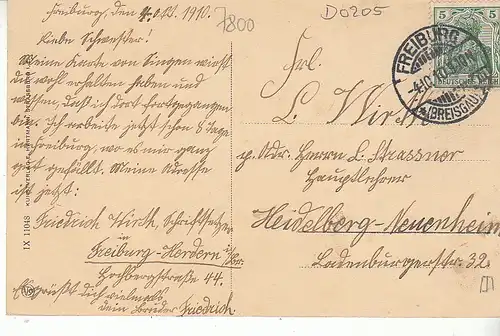 Freiburg, den 4. Okt. 1910.
Liebe Schwester!
Meine Karte von Singen wirst
du wohl erhalten haben und
wissen, daß ich dort fortgegangen
bin. Ich arbeite jetzt schon 8 Tage
in Freiburg, wo es mir ganz
gut gefällt. Meine Adresse
ist jetzt:
Friedrich Wirth, Schriftsetzer
in
Freiburg-Herdern i/Br.
Hochbergstraße 44.
Es grüßt dich vielmals
dein Bruder Friedrich
IX 11048
7800
D0205
5
5
DEUTSCHES REICH
FREIBURG
4.10.10
(BREISGAU)
Frl.
L. Wirth
p. Adr. Herrn L. Strassner
Hauptlehrer
Heidelberg-Neuenheim
Ladenburgerstr. 32.